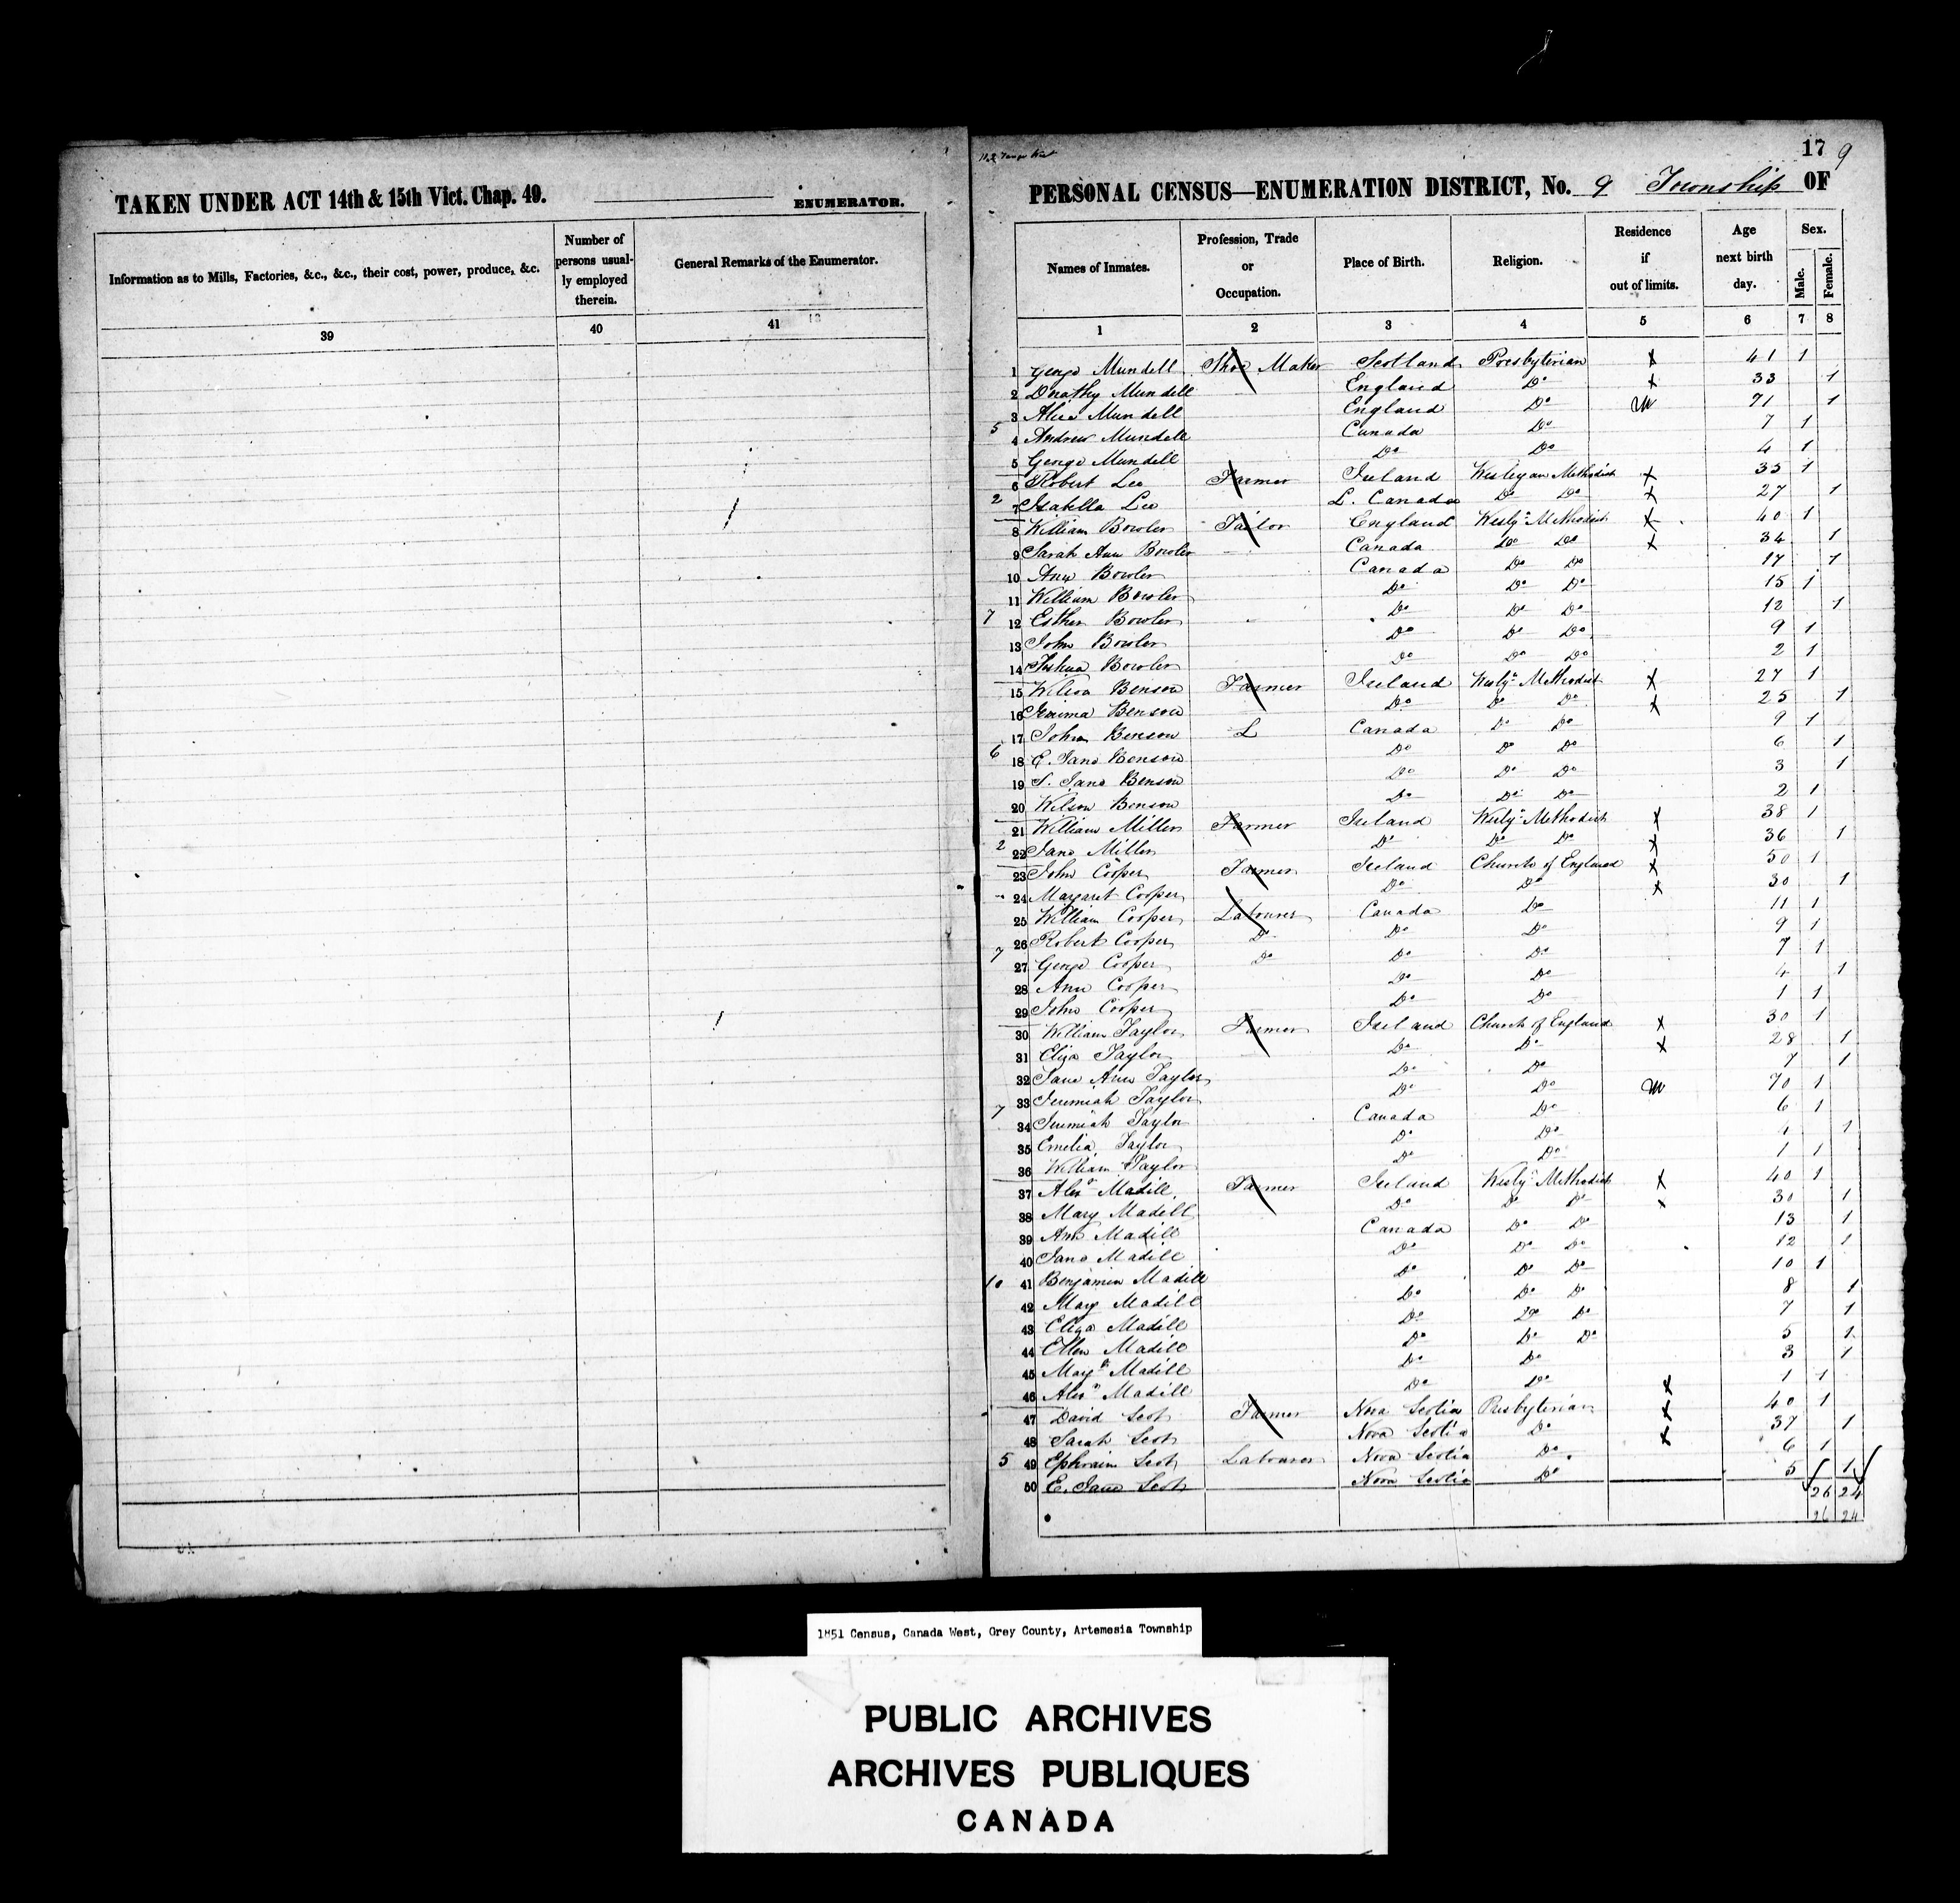 TAKEN UNDER ACT 14th & 15th Vict. Chap. 49.
ENUMERATOR.
Information as to Mills, Factories, &c., &c., their cost, power, produce, &c.
Number of persons usual-ly employed therein.
General Remarks of the Enumerator.
39 40 41
17 9
PERSONAL CENSUS—ENUMERATION DISTRICT, No. 9 Township OF
Names of Inmates.
Profession, Trade or Occupation.
Place of Birth.
Religion.
Residence if out of limits.
Age next birth day.
Sex.
Male.
Female.
1 2 3 4 5 6 7 8
1 George Mundell Shoe Maker Scotland Presbyterian x 41 1
2 Dorathy Mundell England Do x 33 1
3 Alice Mundell England Do W 71 1
5
4 Andrew Mundell Canada Do 7 1
5 George Mundell Do Do 4 1
6 Robert Lee Farmer Ireland Wesleyan Methodist x 35 1
2
7 Isabella Lee L. Canada Do Do x 27 1
8 William Bowler Tailor England Wesly. Methodist x 40 1
9 Sarah Ann Bowler Canada Do Do x 34 1
10 Ann Bowler Canada Do Do 17 1
11 William Bowler Do Do Do 15 1
7
12 Esther Bowler Do Do Do 12 1
13 John Bowler Do Do Do 9 1
14 Joshua Bowler Do Do Do 2 1
15 Wilson Benson Farmer Ireland Wesly. Methodist x 27 1
16 Jemima Benson Do Do Do x 25 1
17 John Benson L Canada Do Do 9 1
6
18 E. Jane Benson Do Do Do 6 1
19 S. Jane Benson Do Do Do 3 1
20 Wilson Benson Do Do Do 2 1
21 William Miller Farmer Ireland Wesly. Methodist x 38 1
2
22 Jane Miller Do Do Do x 36 1
23 John Cooper Farmer Ireland Church of England x 30 1
24 Margaret Cooper Do Do x 30 1
25 William Cooper Labourer Canada Do 11 1
26 Robert Cooper Do Do Do 9 1
7
27 George Cooper Do Do Do 7 1
28 Ann Cooper Do Do 4 1
29 John Cooper Do Do 1 1
30 William Taylor Farmer Ireland Church of England x 30 1
31 Eliza Taylor Do Do x 28 1
32 Jane Ann Taylor Do Do 7 1
33 Jeremiah Taylor Do Do W 70 1
7
34 Jeremiah Taylor Canada Do 6 1
35 Emelia Taylor Do Do 1
36 William Taylor Do Do 1 1
37 Alexr Madill Farmer Ireland Wesly. Methodist x 40 1
38 Mary Madill Do Do Do x 30 1
39 Ann Madill Canada Do Do 13 1
40 Jane Madill Do Do Do 12 1
10
41 Benjamin Madill Do Do Do 10 1
42 Mary Madill Do Do Do 8 1
43 Eliza Madill Do Do Do 7 1
44 Ellen Madill Do Do Do 5 1
45 Margt Madill Do Do 3 1
46 Alexr Madill Do Do 1 1
47 David Scot Farmer Nova Scotia Presbyterian x 40 1
48 Sarah Scot Nova Scotia Do x 37 1
5
49 Ephraim Scot Labourer Nova Scotia Do 6 1
50 E. Jane Scot Nova Scotia Do 5 1
26 24
26 24
1851 Census, Canada West, Grey County, Artemesia Township
PUBLIC ARCHIVES
ARCHIVES PUBLIQUES
CANADA